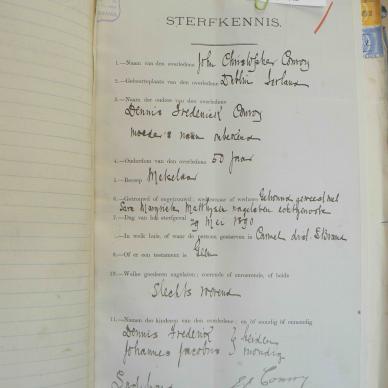 STERFKENNIS.
1.—Naam van den overledene John Christopher Conroy
2.—Geboorteplaats van den overledene Dublin Ierland
3.—Namen der ouders van den overledene
Dennis Frederick Conroy
moeder's naam onbekend
4.—Ouderdom van den overledene 50 jaar
5.—Beroep Makelaar
6.—Getrouwd of ongetrouwd; weduwnaar of weduwe Getrouwd geweest met
Sara nagelaten echtgenoote
7.—Dag van het sterfgeval 29 Mei 1890
8.—In welk huis, of waar de persoon gestorven is Carmel dist.
9.—Of er een testament is Geen
10.—Welke goederen nagelaten; roerende of onroerende, of beide
Slechts roerend
11.—Namen der kinderen van den overledene; en of mondig of onmondig
Dennis Frederick } beiden
Johannes Jacobus } mondig
Conroy